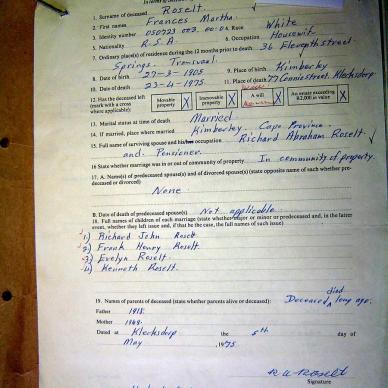 1. Surname of deceased Roselt
2. First names Frances Martha.
3. Identity number 050723 003. 00. 0 Race White
5. Nationality R.S.A. 6. Occupation Housewife
7. Ordinary place(s) of residence during the 12 months prior to death 36 Eleventh street
Springs. Transvaal.
8. Date of birth 27-3-1905 9. Place of birth Kimberley
10. Date of death 23-4-1975. 11. Place of death 77 Connie street. Klerksdorp
12. Has the deceased left (mark with a cross where applicable): Movable property X Immovable property X A will X An estate exceeding R2,000 in value X
13. Marital status at time of death Married
14. If married, place where married Kimberley. Cape Province.
15. Full name of surviving spouse and his occupation Richard Abraham Roselt.
and Pensioner.
16 State whether marriage was in or out of community of property In community of property.
17. A. Name(s) of predeceased spouse(s) and divorced spouse(s) (state opposite name of each whether predeceased or divorced)
None
B. Date of death of predeceased spouse(s) Not applicable
18. Full names of children of each marriage (state whether major or minor or predeceased and, in the latter
event, whether they left issue and, if that be the case, the full names of such issue)
1) Richard John Roselt
2) Frank Henry Roselt
3) Evelyn Roselt
4) Kenneth Roselt.
19. Names of parents of deceased (state whether parents alive or deceased): Deceased died long ago.
Father 1918.
Mother
Dated at Klerksdorp the 5th day of
May 1975.
R A Roselt
Signature